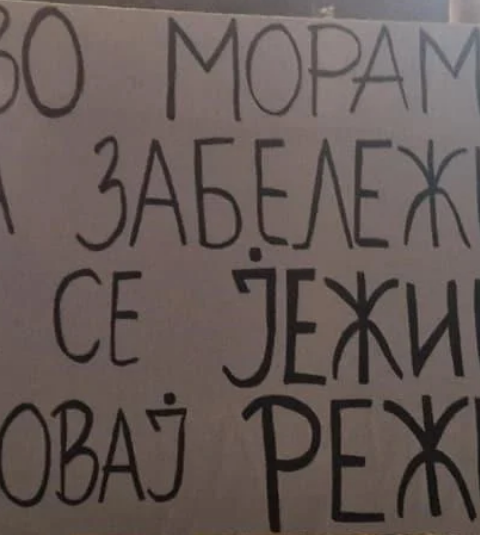 ВО МОРАМ
А ЗАБЕЛЕЖ
СЕ ЈЕЖИ
ОВАЈ РЕЖ